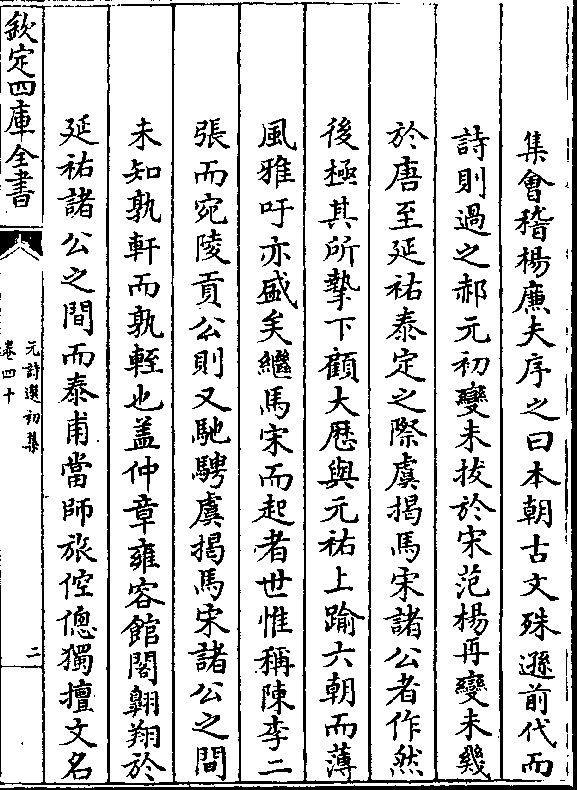 集會稽楊廉夫序之曰本朝古文殊遜前代而
詩則過之郝元初變未拔於宋范楊再變未幾
於唐至延祐泰定之際虞揭馬宋諸公者作然
後極其所摯下顧大厯與元祐上踰六朝而薄
風雅吁亦盛矣繼馬宋而起者世惟稱陳李二
張而宛陵貢公則又馳騁虞揭馬宋諸公之間
未知孰軒而孰輊也盖仲章雍容館閣翺翔於
延祐諸公之間而泰甫當師旅倥傯獨擅文名
欽定四庫全書
元詩選初集
卷四十
二